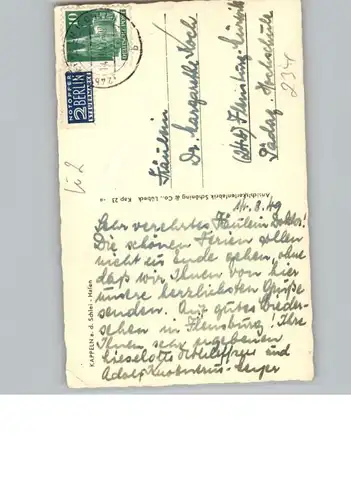 10
NOTOPFER
2 BERLIN
STEUERMARKE
Fräulein
Dr. Margarethe Koch
(24b) Flensburg-Mürwik
Pädag. Hochschule
234
Ü 2
Ansichtskartenfabrik Schöning & Co., Lübeck Kap 25
KAPPELN a. d. Schlei - Hafen
8.49
Sehr verehrtes Fräulein Doktor!
Die schönen Ferien sollen
nicht zu ende gehen, ohne
daß wir Ihnen von hier
unsere herzlichsten Grüße
senden. Auf gutes Wieder-
sehen in Flensburg! Ihre
Ihnen sehr ergebenen
Lieselotte und
Adolf